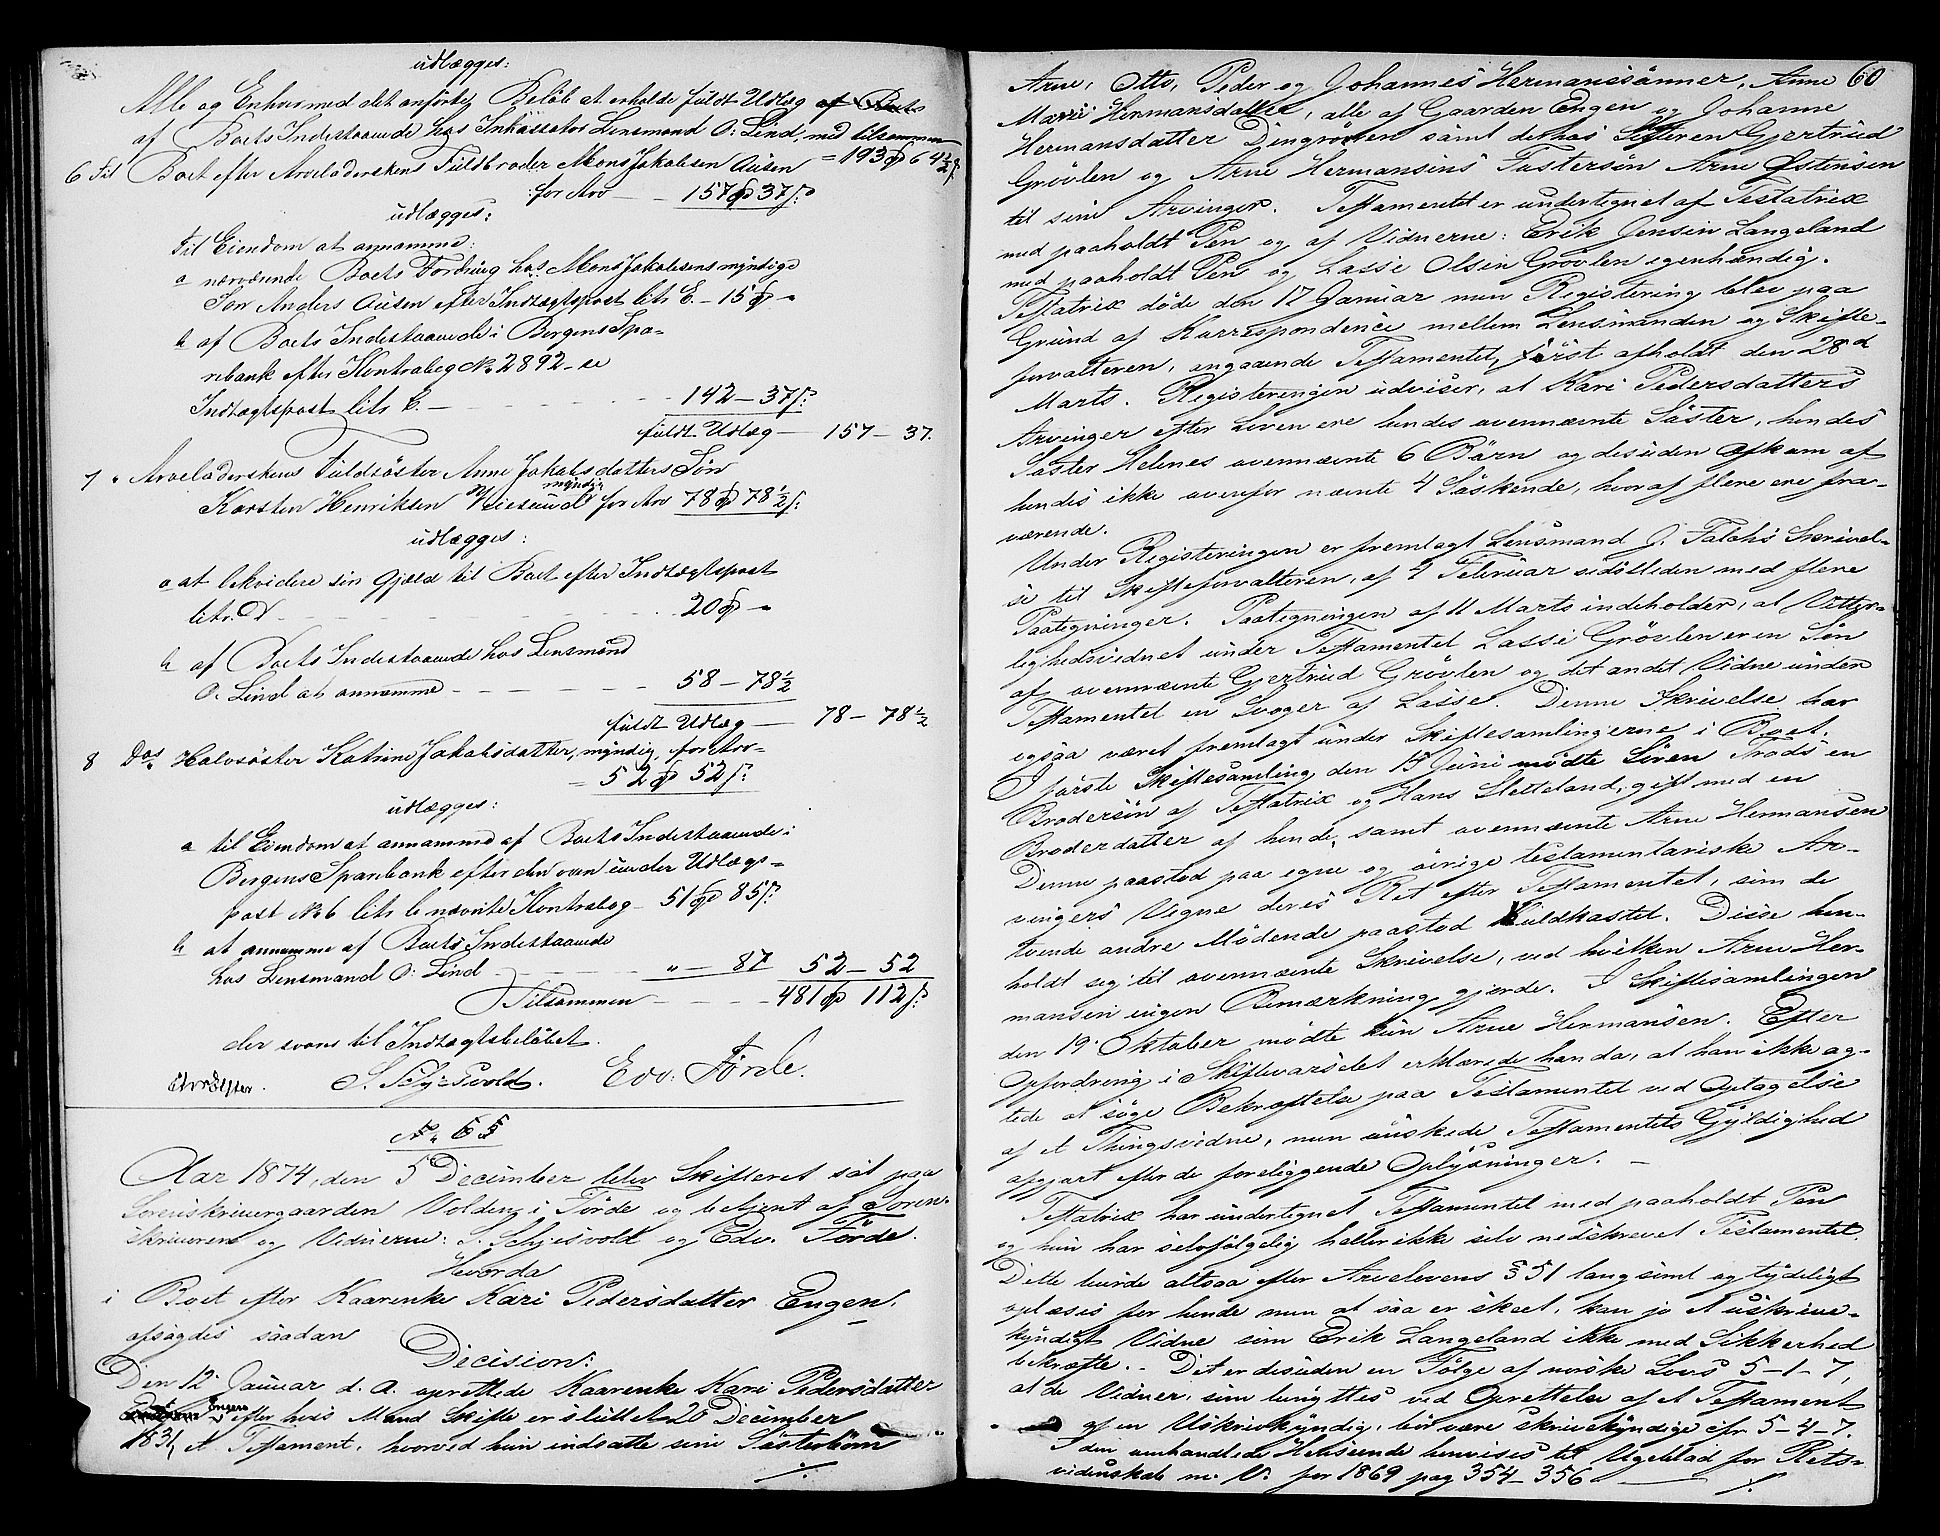 udlægges:
Alle og Enhver med det anførte Beløb at erholde fuldt Udlæg af Boets
af Boets Indestaaende hos Inkassator Lensmand O: Lind, med tilsammen
= 193 Spd 64½ s:
6 Til Boet efter Arveladerskens Fuldbroder Mons Jakobsen Ausen
for Arv — 157 Spd 37 s:
udlægges:
til Eiendom at annamme:
a nærværende Boets Fordring hos Mons Jakobsens myndige
Søn Anders Ausen efter Indtægtspost litr E. – 15 Spd "
b af Boets Indestaaende i Bergens Spa-
rebank efter Kontrabog No 2892 – se
Indtægtspost litr C. — 142 – 37 s:
fuldt Udlæg — 157 – 37.
7 " Arveladerskens Fuldsøster Anne Jakobsdatters Søn
Karsten Henriksen myndig for Arv 78 Spd 78½ s:
udlægges:
a at likvidere sin Gjæld til Boet efter Indtægtspost
litr. D — 20 Spd "
b af Boets Indestaaende hos Lensmand
O. Lind at annamme — 58 – 78½
fuldt Udlæg — 78 – 78½
8 Dos Halvsøster Katrine Jakobsdatter, myndig, for Arv –
= 52 Spd 52 s:
udlægges:
a til Eiendom at annamme af Boets Indestaaende i
Bergens Sparebank efter den oven under Udlægs-
post No 6 litr b nævnte Kontrabog – 51 Spd 85 s:
b at annamme af Boets Indestaaende
hos Lensmand O: Lind — " – 87 52 – 52
Tilsammen — 481 Spd 112 s:
der svare til Indtægtsbeløbet.
S. Schjesvold. Edv. Førde.
No 65
Aar 1874, den 5 December blev Skifteret sat paa
Sorenskrivergaarden Volden i Førde og betjent af Soren-
skriveren og Vidnerne: S. Schjesvold og Edv. Førde.
Hvorda
i Boet efter Kaarenke Kari Pedersdatter Engen.
afsagdes saadan
Decision:
Den 12 Januar d. A. oprettede Kaarenke Kari Pedersdatter
Engen efter hvis Mand Skifte er sluttet 20 December
1831, et Testament, hvorved hun indsatte sine Søsterbørn
./.
60
Arne, Otto, Peder og Johannes Hermanssønner, Anne
Marie Hermansdatter, alle af Gaarden Engen og Johanne
Hermansdatter Dingrøvlen samt dethos Søsteren Gjertrud
Grøvlen og Arne Hermansens Fostersøn Arne Østensen
til sine Arvinger. Testamentet er undertegnet af Testatrix
med paaholdt Pen og af Vidnerne: Erik Jensen Langeland
med paaholdt Pen og Lasse Olsen Grøvlen egenhændig.
Testatrix døde den 17 Januar men Registrering blev paa
Grund af Korrespondence mellem Lensmanden og Skifte-
forvalteren, angaaende Testamentet, først afholdt den 28d
Marts. Registreringen udviser, at Kari Pedersdatters
Arvinger efter Loven ere hendes ovennævnte Søster, hendes
Søster Helenes ovennævnte 6 Børn og desuden Afkom af
hendes ikke ovenfor nævnte 4 Søskende, hvoraf flere ere fra-
værende.
Under Registeringen er fremlagt Lensmand J. Falchs Skrivel-
se til Skifteforvalteren, af 2 Februar sidstleden med flere
Paategninger. Paategningen af 11 Marts indeholder, at Vitter-
lighedsvidnet under Testamentet Lasse Grøvlen er en Søn
af ovennævnte Gjertrud Grøvlen og det andet Vidne under
Testamentet en Svoger af Lasse. Denne Skrivelse har
ogsaa været fremlagt under Skiftesamlingerne i Boet.
I første Skiftesamling den 15 Juni mødte Søren Trods en
Brodersøn af Testatrix og Hans Sletteland, gift med en
Broderdatter af hende, samt ovennævnte Arne Hermansen
Denne paastod paa egne og øvrige testamentariske Ar-
vingers Vegne deres Ret efter Testamentet, som de
tvende andre Mødende paastod kuldkastet. Disse hen-
holdt sig til ovennævnte Skrivelse, ved hvilken Arne Her-
mansen ingen Bemærkning gjorde. I Skiftesamlingen
den 19 Oktober mødte kun Arne Hermansen. Efter
Opfordring i Skiftevarslet erklærede han da, at han ikke ag-
tede at søge Bekræftelse paa Testamentet ved Optagelse
af et Thingsvidne, men ønskede Testamentets Gyldighed
afgjort efter de foreliggende Oplysninger. —
Testatrix har undertegnet Testamentet med paaholdt Pen
og hun har selvfølgelig heller ikke selv nedskrevet Testamentet.
Dette burde altsaa efter Arvelovens § 51 langsomt og tydeligt
oplæses for hende men at saa er skeet, kan jo et uskrive-
kyndigt Vidne som Erik Langeland ikke med Sikkerhed
bekræfte. – Det er desuden en Følge af norske Lovs 5–1–7,
at de Vidner, som benyttes ved Oprettelse af et Testament
af en Uskrivekyndig, bør være skrivekyndige cfr 5–4–7.
I den omhandlede Henseende henvises til Ugeblad for Rets-
videnskab m. V. for 1869 pag 354–356 — ./.